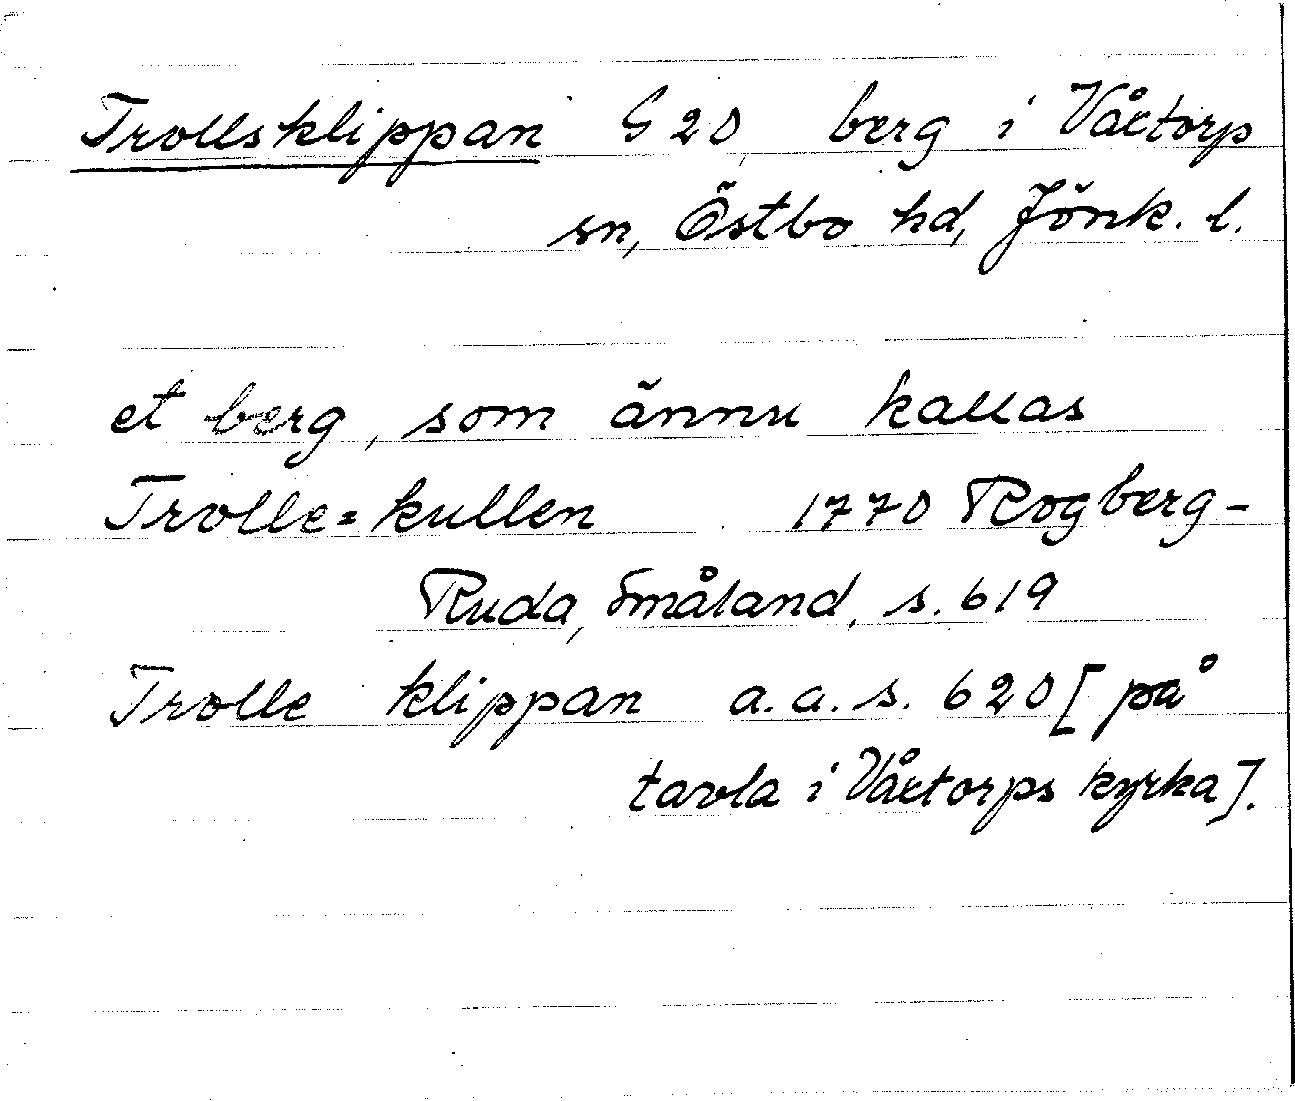 Trollsklippan G 20 berg i Våxtorp
sn, Östbo hd, Jönk. l.
et berg, som ännu kallas
Trolle=kullen 1770 Rogberg-
Ruda, Småland, s. 619
Trolle klippan a.a.s. 620 [på
tavla i Våxtorps kyrka].